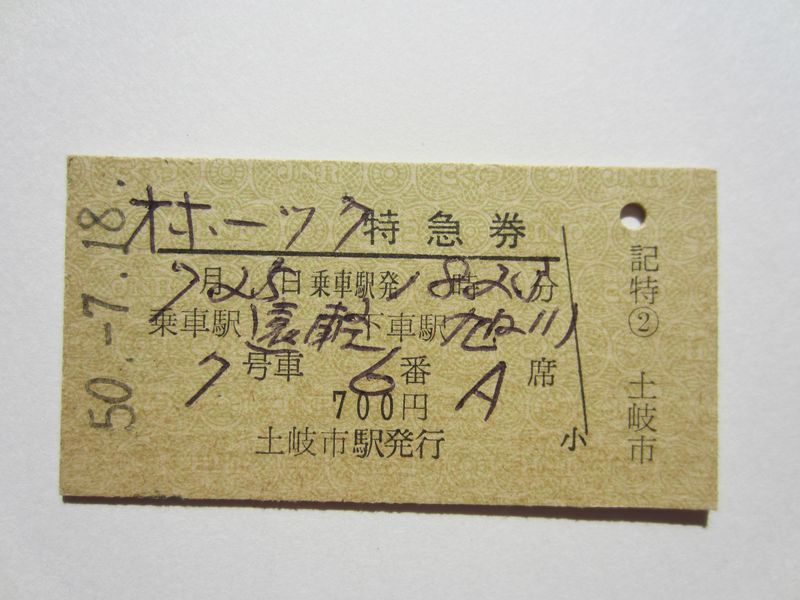 50.-7.18.
オホーツク特急券
7月25日乗車駅発18時2分
乗車駅遠軽下車駅旭川
7号車6番A席
700円
土岐市駅発行
小
記特② 土岐市
JNR